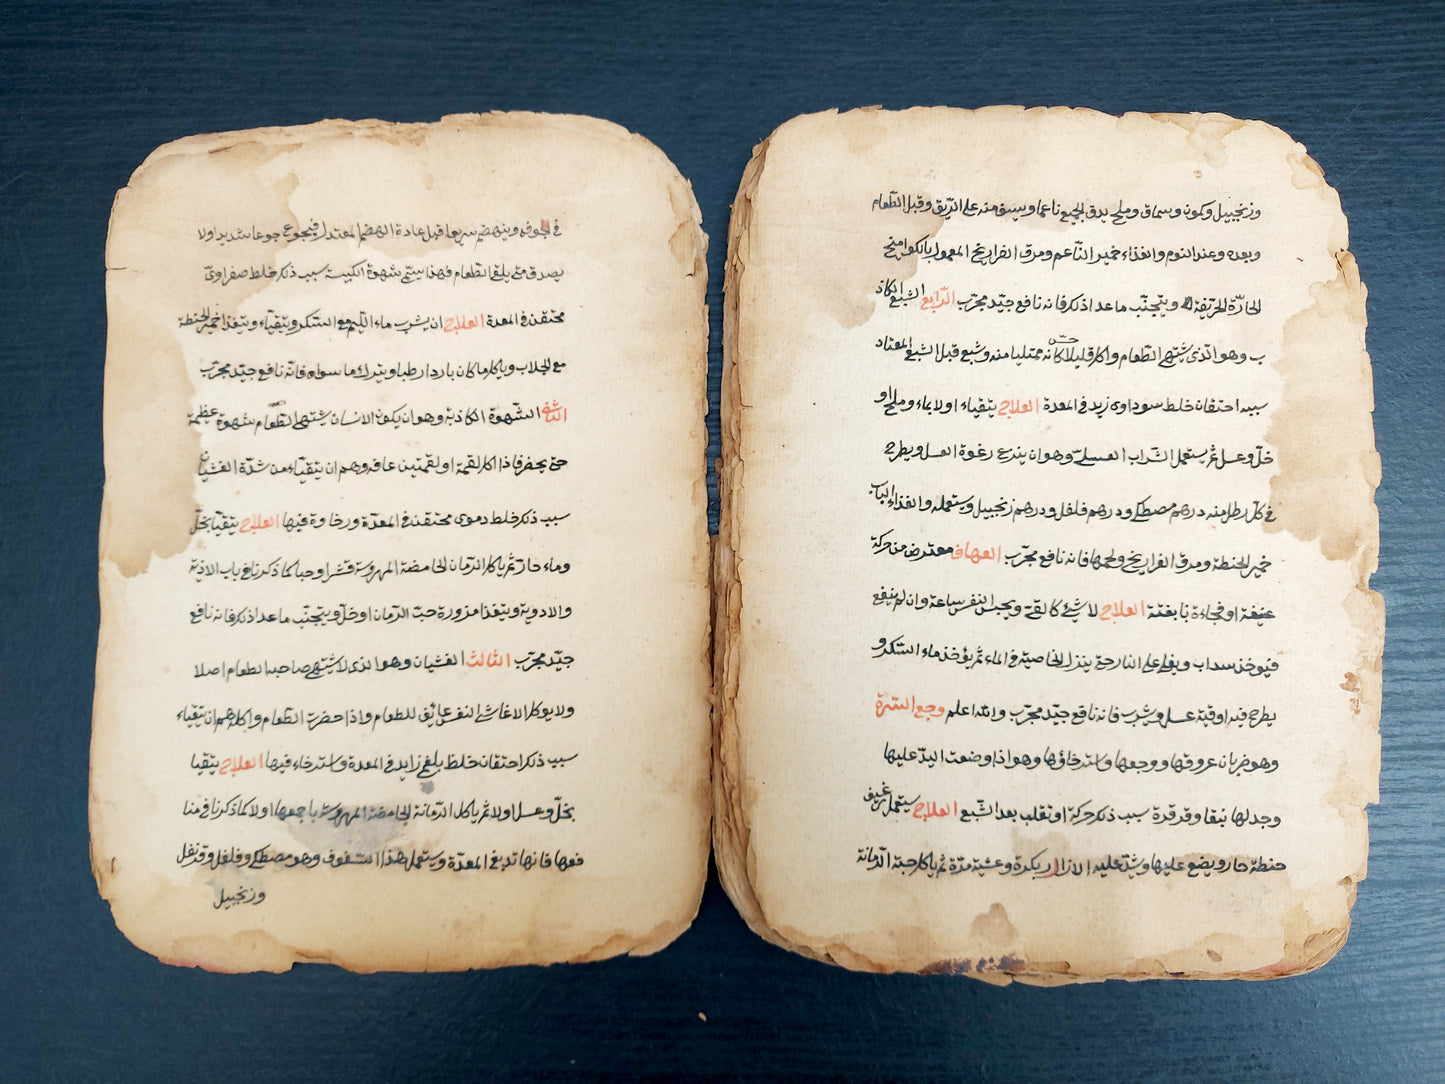 في جوفه وينهضم سريعا قبل عادة الهضم المعتدل فيجوع جوعا شديدا ولا
يصدق متى يلقى الطّعام فهذا يسمّى شهوة الكلبيّة سبب ذلك خلط صفراوىّ
محتقن فى المعدة العلاج ان يشرب ماء اللّيم مع السّكر ويتقيّاء ويتغذا خمير الحنطة
مع الجلاب وياكل ما كان باردا رطبا ويترك ما سواه فانّه نافع جيّد مجرّب
الثانى الشّهوة الكاذبة وهو ان يكون الانسان يشتهى الطّعام بشهوة عظيمة
حتى يحضر فاذا اكل لقمة او لقمتين عافه وهم ان يتقيّاء من شدّة الغشيان
سبب ذلك خلط دموى محتقن فى المعدّة ورخاوة فيها العلاج يتقيّا بخلّ
وماء حار ثم ياكل الرّمان الحامضة المهروسة قشرا وحبا كما ذكرنا فى باب الاذية
والادوية ويتغذا مزورة حبّ الرّمان او خلّ ويتجنّب ما عدا ذلك فانه نافع
جيّد مجرّب الثّالث الغشيان وهو الذى لا يشتهى صاحبه الطعام اصلا
ولا يوكل الا غاشى النفس عائق للطعام واذا حضرت الطّعام واكله هم ان يتقيّاء
سبب ذلك احتقان خلط بلغمى زايد فى المعدة واسترخاء فيها العلاج يتقيا
بخلّ وعسل اولا ثم ياكل الرّمانة الحامضة المهروسة باجمعها اولا كما ذكرنا فى منا
فعها فانها تدبغ المعدّة ويستعمل هذا السّفوف وهو مصطكى وفلفل وقرنفل
وزنجبيل
وزنجبيل وكمون وسماق وملح يدق الجميع ناعما ويسف منه على الرّيق وقبل الطّعام
وبعده وعند النوم والغذاء خمير النّاعم ومرق الفراريخ المعمول بالكوامخ
الحارّة الحريفة ويتجنّب ما عدا ذلك فانه نافع جيّد مجرّب الرّابع الشبع الكاذ
ب وهو الّذى يشتهى الطّعام واكل قليلا حسّ كانه ممتليا منه وشبع قبل الشبع المعتاد
سببه احتقان خلط سوداوى زيد فى المعدة العلاج يتقيّاء اولا بماء وملح او
خلّ وعسل ثم يستعمل الشّراب العسلىّ وهو ان ينزع رغوة العسل ويطرح
فى كلّ رطل منه درهم مصطكى ودرهم فلفل ودرهم زنجبيل ويستعمله والغذاء لباب
خمير الحنطة ومرق الفراريخ ولحمها فانه نافع مجرّب الفهاق معترض من حركة
عنيفة او فجاءة نابغتة العلاج لا شئ كالقئ ويحبس النفس ساعة وان لم ينفع
فيوخذ سداب ويغلى على النار حتى ينزل الخاصيّة فى الماء ثم يؤخذ ماء السّكر و
يطرح فيه اوقيّة عسل ويشرب فانه نافع جيّد مجرّب والله اعلم وجع السّرّة
وهو ضربان عروقها ووجعها واسترخاؤها وهو اذا وضعت اليدّ عليها
وجد لها نبقا وقرقرة سبب ذلك حركة او تقلب بعد الشّبع العلاج يستعمل رغيف
حنطة حار ويضع عليها ويشدّ عليه الازار بكرة وعشية مدّة ثم ياكل حبّة الرّمانة